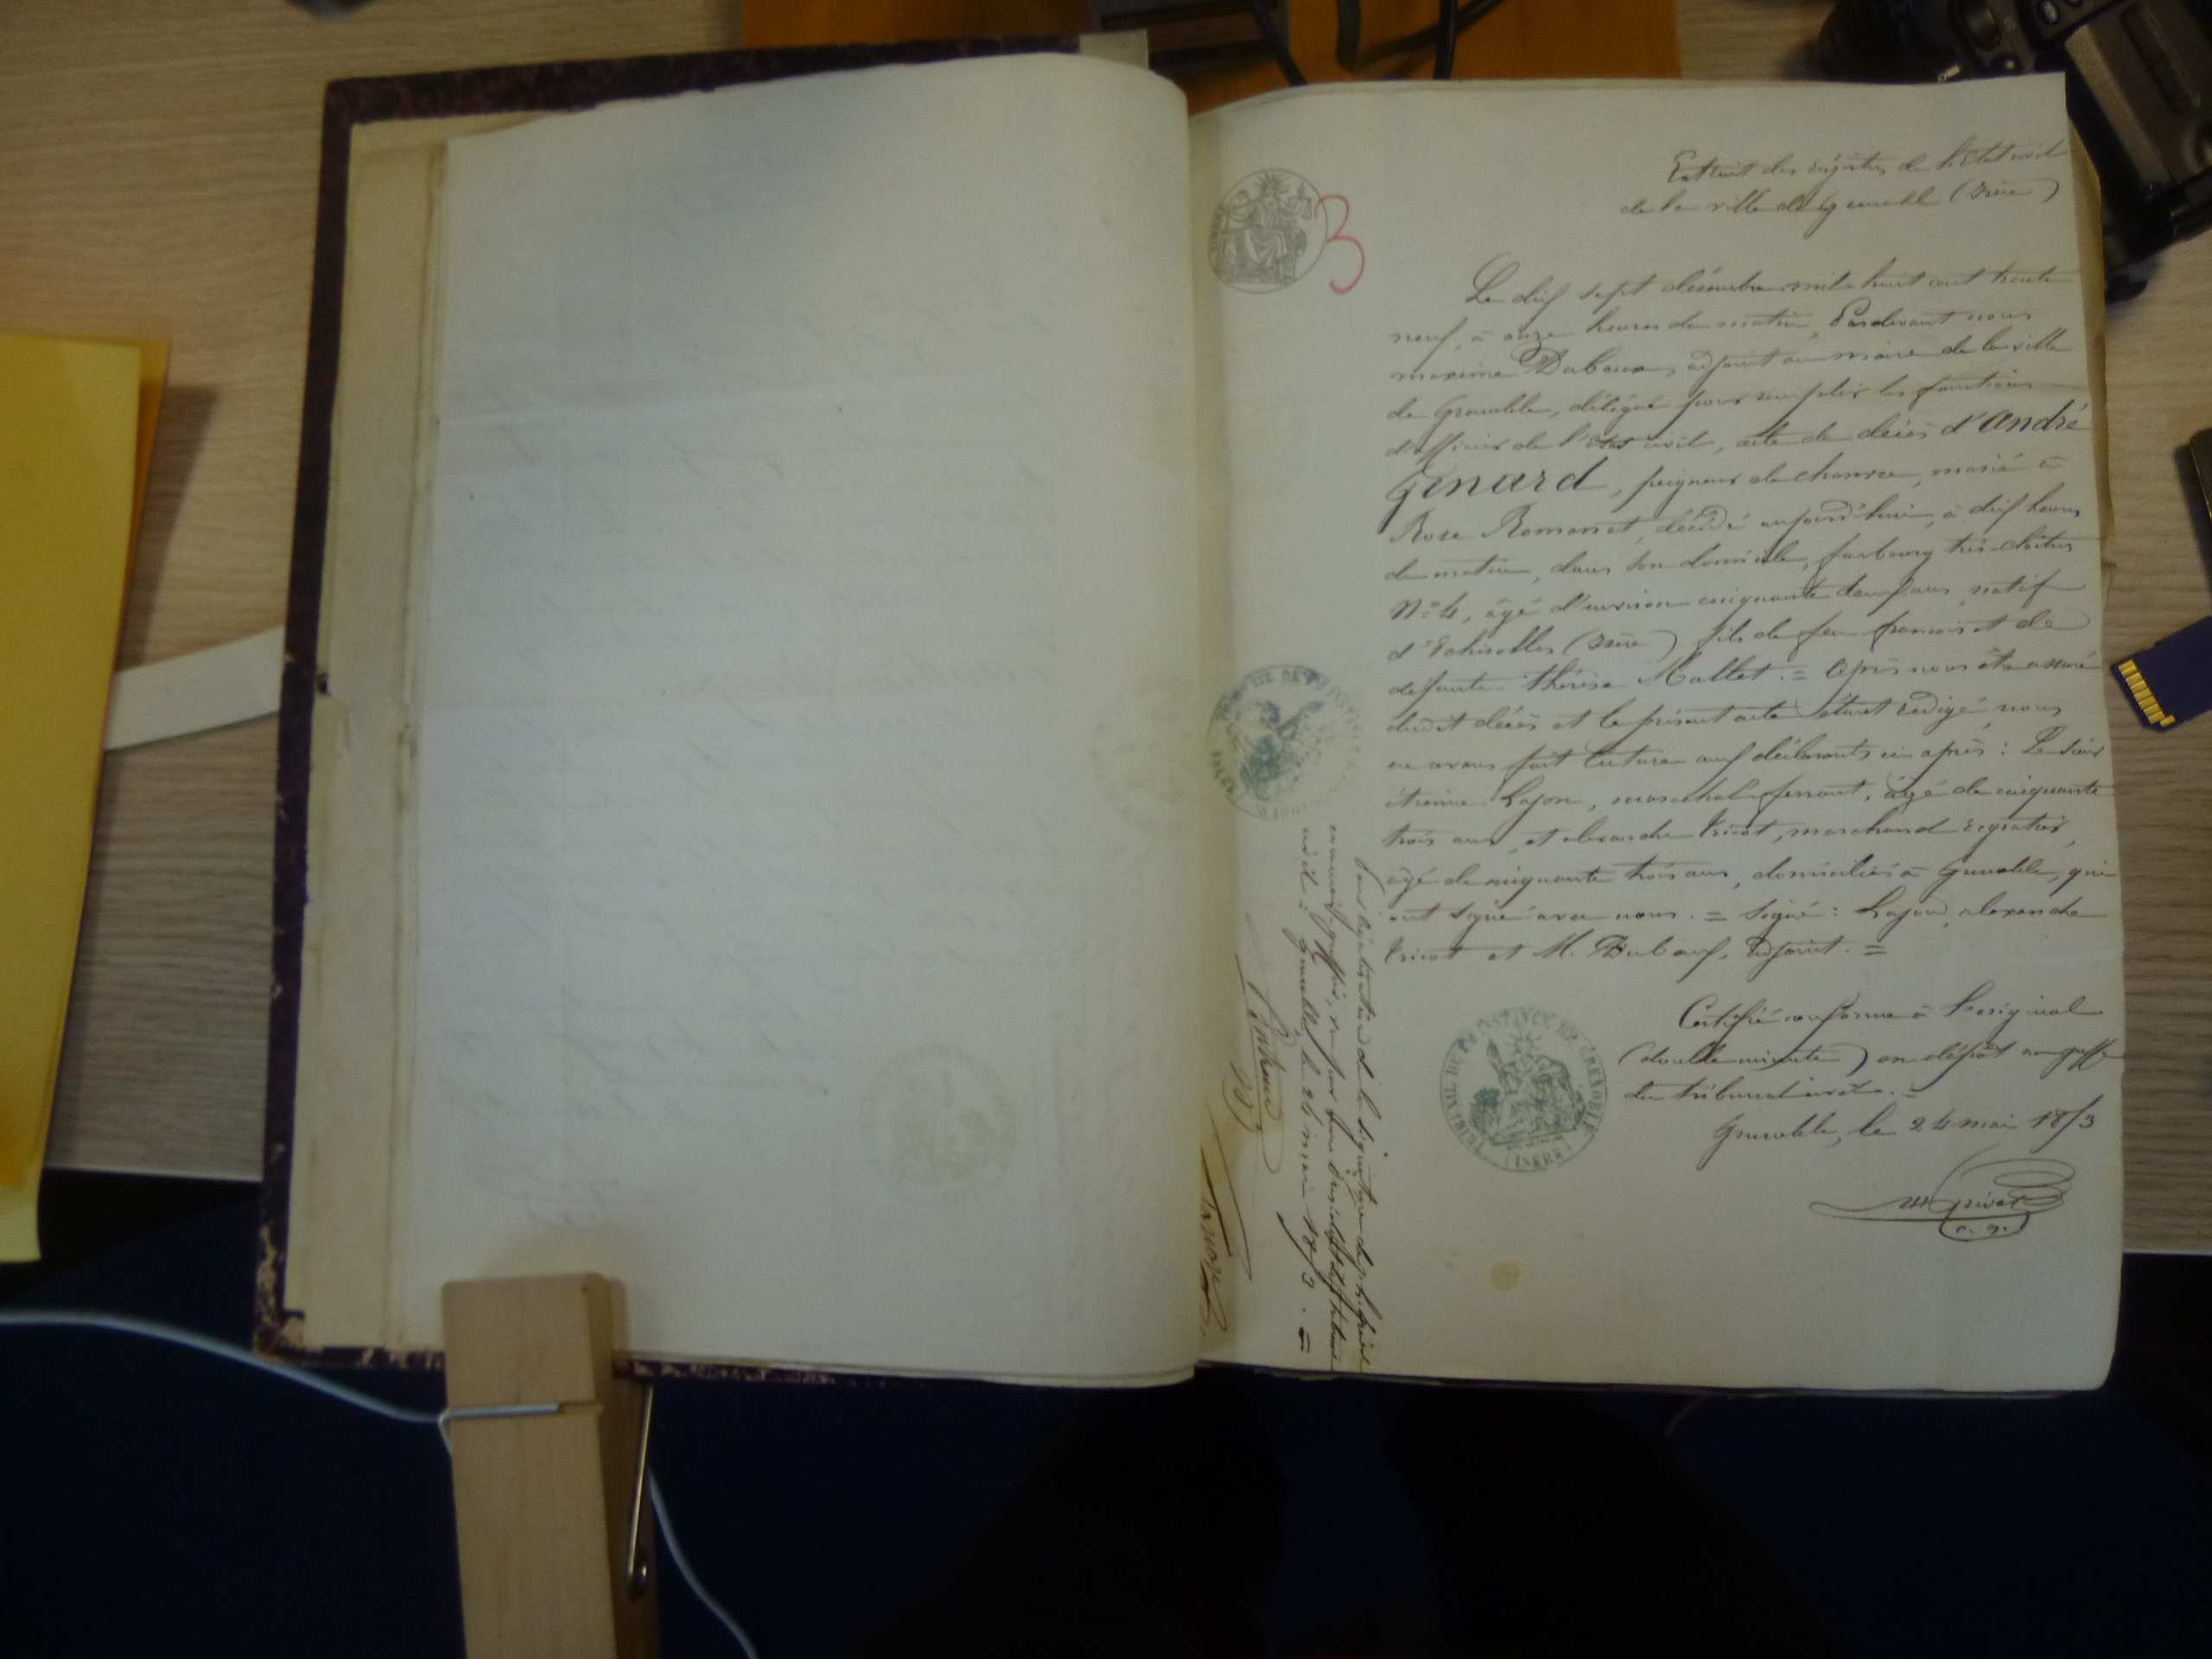 3
Extrait des régistres de l'Etat civil
de la ville de Grenoble (Isère)
Le dix sept décembre mil huit cent trente
neuf, à onze heures du matin, Pardevant nous
maxime Duboux, adjoint au maire de la ville
de Grenoble, délégué pour remplir les fonctions
d'officier de l'Etat civil, acte de décès d'André
Genard, peigneur de chanvre, marié à
Rose Romanet, décédé aujourd'hui, à dix heures
du matin, dans son domicile, faubourg très-cloîtres
N° 4, âgé d'environ cinquante deux ans, natif
d'Echirolles (Isère) fils de feu françois et de
défunte thérèse Mallet. = Après nous être assuré
dudit décès et le présent acte étant rédigé, nous
en avons fait lecture aux déclarants ci après : Le sieur
étienne Lajon, maréchal ferrant, âgé de cinquante
trois ans, et alexandre tricot, marchand
âgé de cinquante trois ans, domiciliés à Grenoble, qui
ont signé avec nous. = Signé : Lajon, alexandre
tricot et M. Duboux, adjoint. =
Certifié conforme à l'original
(double minute) en dépôt au greffe
du tribunal civil. =
Grenoble, le 24 mai 1873
(c. g.)
TRIBUNAL DE 1RE INSTANCE DE GRENOBLE
(ISERE)
Pour légalisation de la signature de
commis greffier, par nous
civil. Grenoble le 26 mai 1873. =